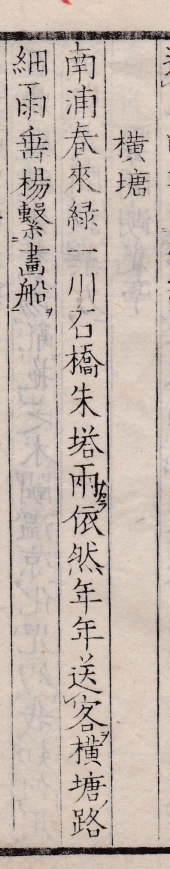 橫塘
南浦春來緑一川石橋朱塔兩依然年年送客橫塘路
細雨垂楊繫畫船